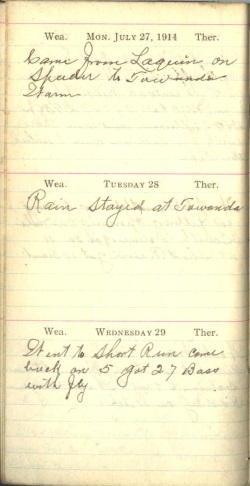 Wea. MON. JULY 27, 1914 Ther.
Came from Laquin on
Speeder to Towanda
Warm
Wea. TUESDAY 28 Ther.
Rain Stayed at Towanda
Wea. WEDNESDAY 29 Ther.
Went to Short Run came
back on 5 got 27 Bass
with fly